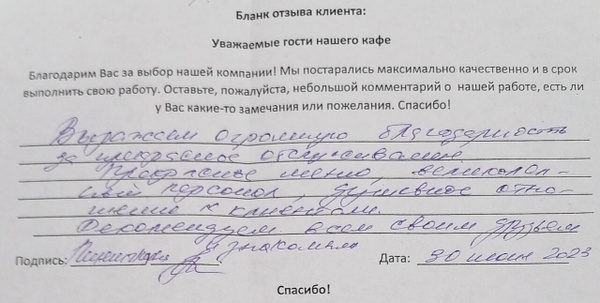 Бланк отзыва клиента:
Уважаемые гости нашего кафе
Благодарим Вас за выбор нашей компании! Мы постарались максимально качественно и в срок
выполнить свою работу. Оставьте, пожалуйста, небольшой комментарий о нашей работе, есть ли
у Вас какие-то замечания или пожелания. Спасибо!
Выражаем огромную благодарность
за прекрасное обслуживание.
Прекрасное меню, великолеп-
ный персонал, душевное отно-
шение к клиентам.
Рекомендуем всем своим друзьям
и знакомым
Подпись: Дата: 30 июля 2023
Спасибо!